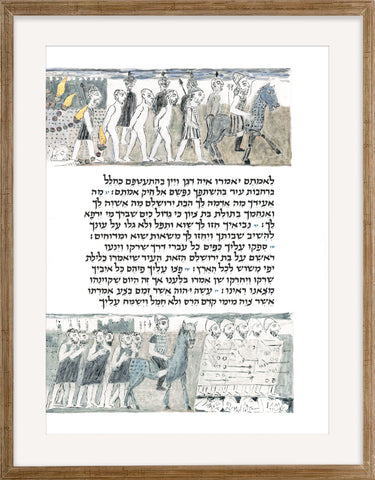 לאמתם יאמרו איה דגן ויין בהתעטפם כחלל
ברחבות עיר בהשתפך נפשם אל חיק אמתם: מה
אעידך מה אדמה לך הבת ירושלם מה אשוה לך
ואנחמך בתולת בת ציון כי גדול כים שברך מי ירפא
לך: נביאיך חזו לך שוא ותפל ולא גלו על עונך
להשיב שבותך ויחזו לך משאות שוא ומדוחים:
ספקו עליך כפים כל עברי דרך שרקו וינעו
ראשם על בת ירושלם הזאת העיר שיאמרו כלילת
יפי משוש לכל הארץ: פצו עליך פיהם כל אויביך
שרקו ויחרקו שן אמרו בלענו אך זה היום שקוינהו
מצאנו ראינו: עשה יהוה אשר זמם בצע אמרתו
אשר צוה מימי קדם הרס ולא חמל וישמח עליך